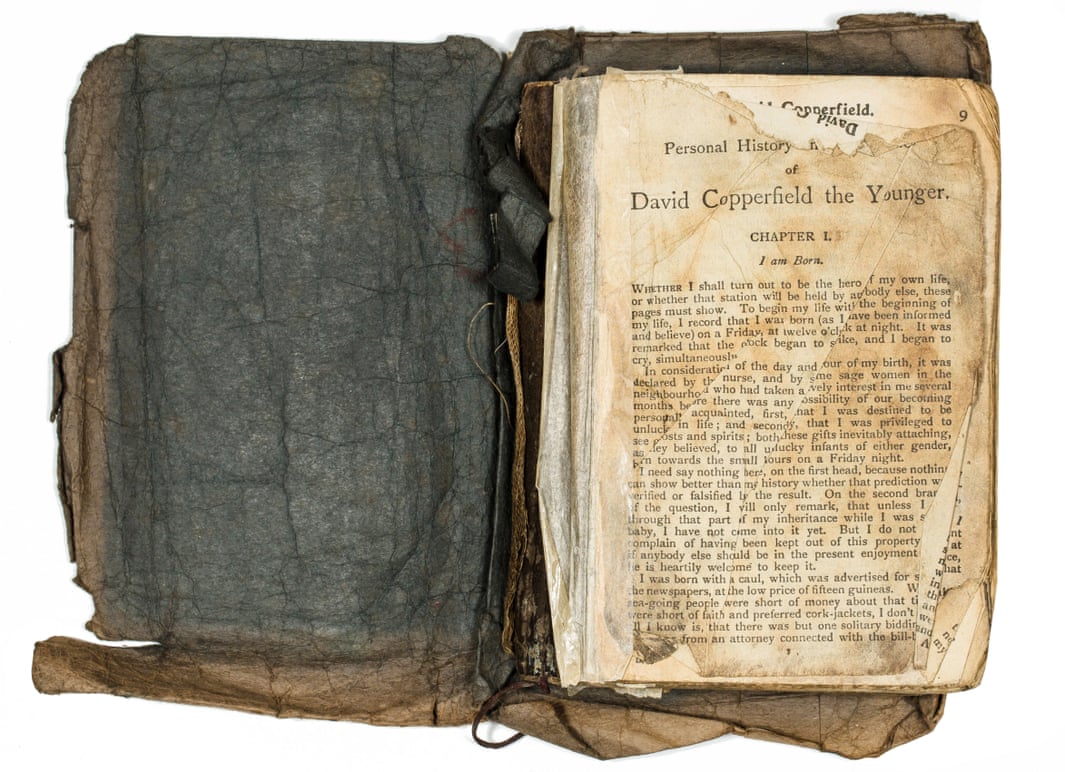 Copperfield.
David
9
Personal History
of
David Copperfield the Younger.
CHAPTER I.
I am Born.
WHETHER I shall turn out to be the hero of my own life,
or whether that station will be held by anybody else, these
pages must show. To begin my life with the beginning of
my life, I record that I was born (as I have been informed
and believe) on a Friday, at twelve o'clock at night. It was
remarked that the clock began to strike, and I began to
cry, simultaneously
In consideration of the day and our of my birth, it was
declared by the nurse, and by some sage women in the
neighbourhood who had taken a vely interest in me several
months before there was any ossibility of our becoming
personally acquainted, first, hat I was destined to be
unlucky in life; and secondly, that I was privileged to
see osts and spirits; both these gifts inevitably attaching,
as ey believed, to all unlucky infants of either gender,
rn towards the small ours on a Friday night.
I need say nothing here, on the first head, because nothing
can show better than my history whether that prediction w
erified or falsified by the result. On the second bran
of the question, I will only remark, that unless I
through that part of my inheritance while I was s
baby, I have not come into it yet. But I do not
complain of having been kept out of this property
if anybody else should be in the present enjoyment
he is heartily welcome to keep it.
I was born with a caul, which was advertised for s
the newspapers, at the low price of fifteen guineas. W
sea-going people were short of money about that ti
were short of faith and preferred cork-jackets, I don't
all I know is, that there was but one solitary biddin
from an attorney connected with the bill-b